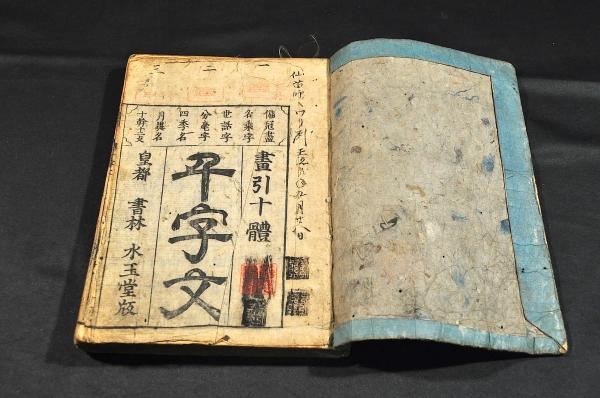 一
二
三
偏冠盡
名乘字
世話字
分毫字
四季名
月異名
十幹十二支
畫引十體
千字文
皇都 書林 水玉堂版